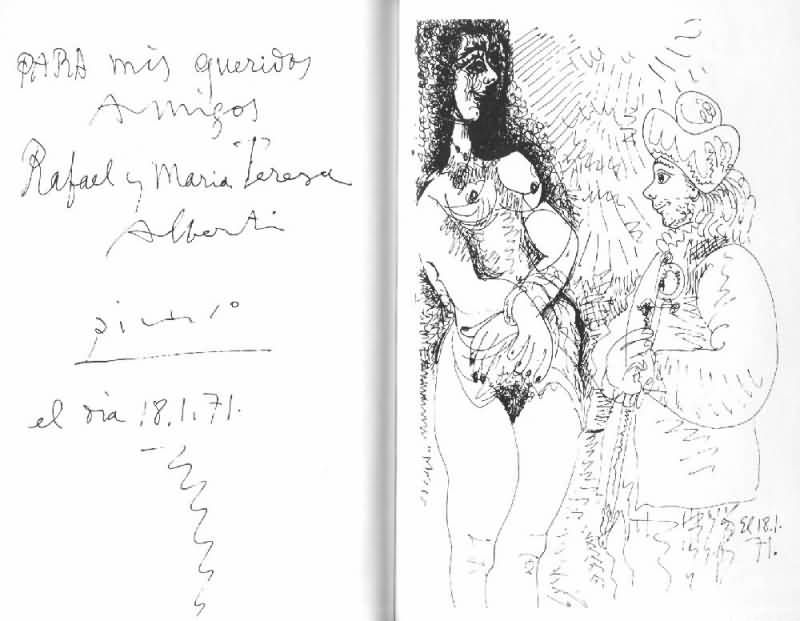 PARA mis queridos
Amigos
Rafael y Maria Teresa
Alberti
Picasso
el dia 18.1.71.
El 18.1.
71.